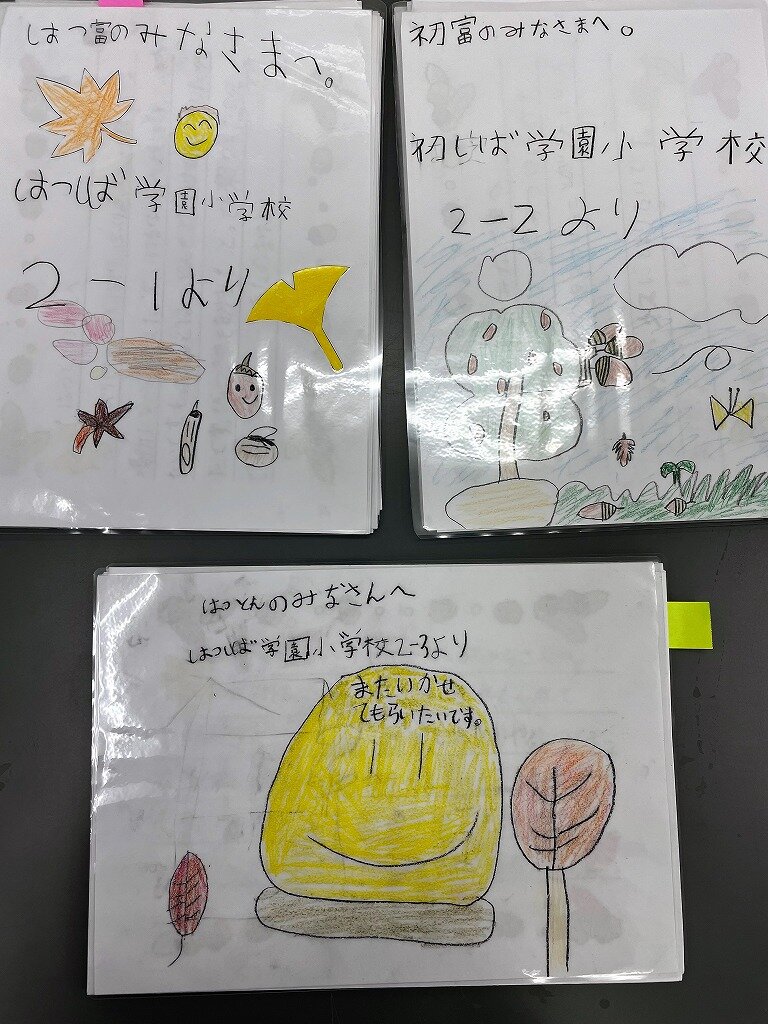 はつ富のみなさまへ。
はつしば学園小学校
2-1より
初富のみなさまへ。
初しば学園小学校
2-2より
はつとんのみなさんへ
はつしば学園小学校2-3より
またいかせ
てもらいたいです。